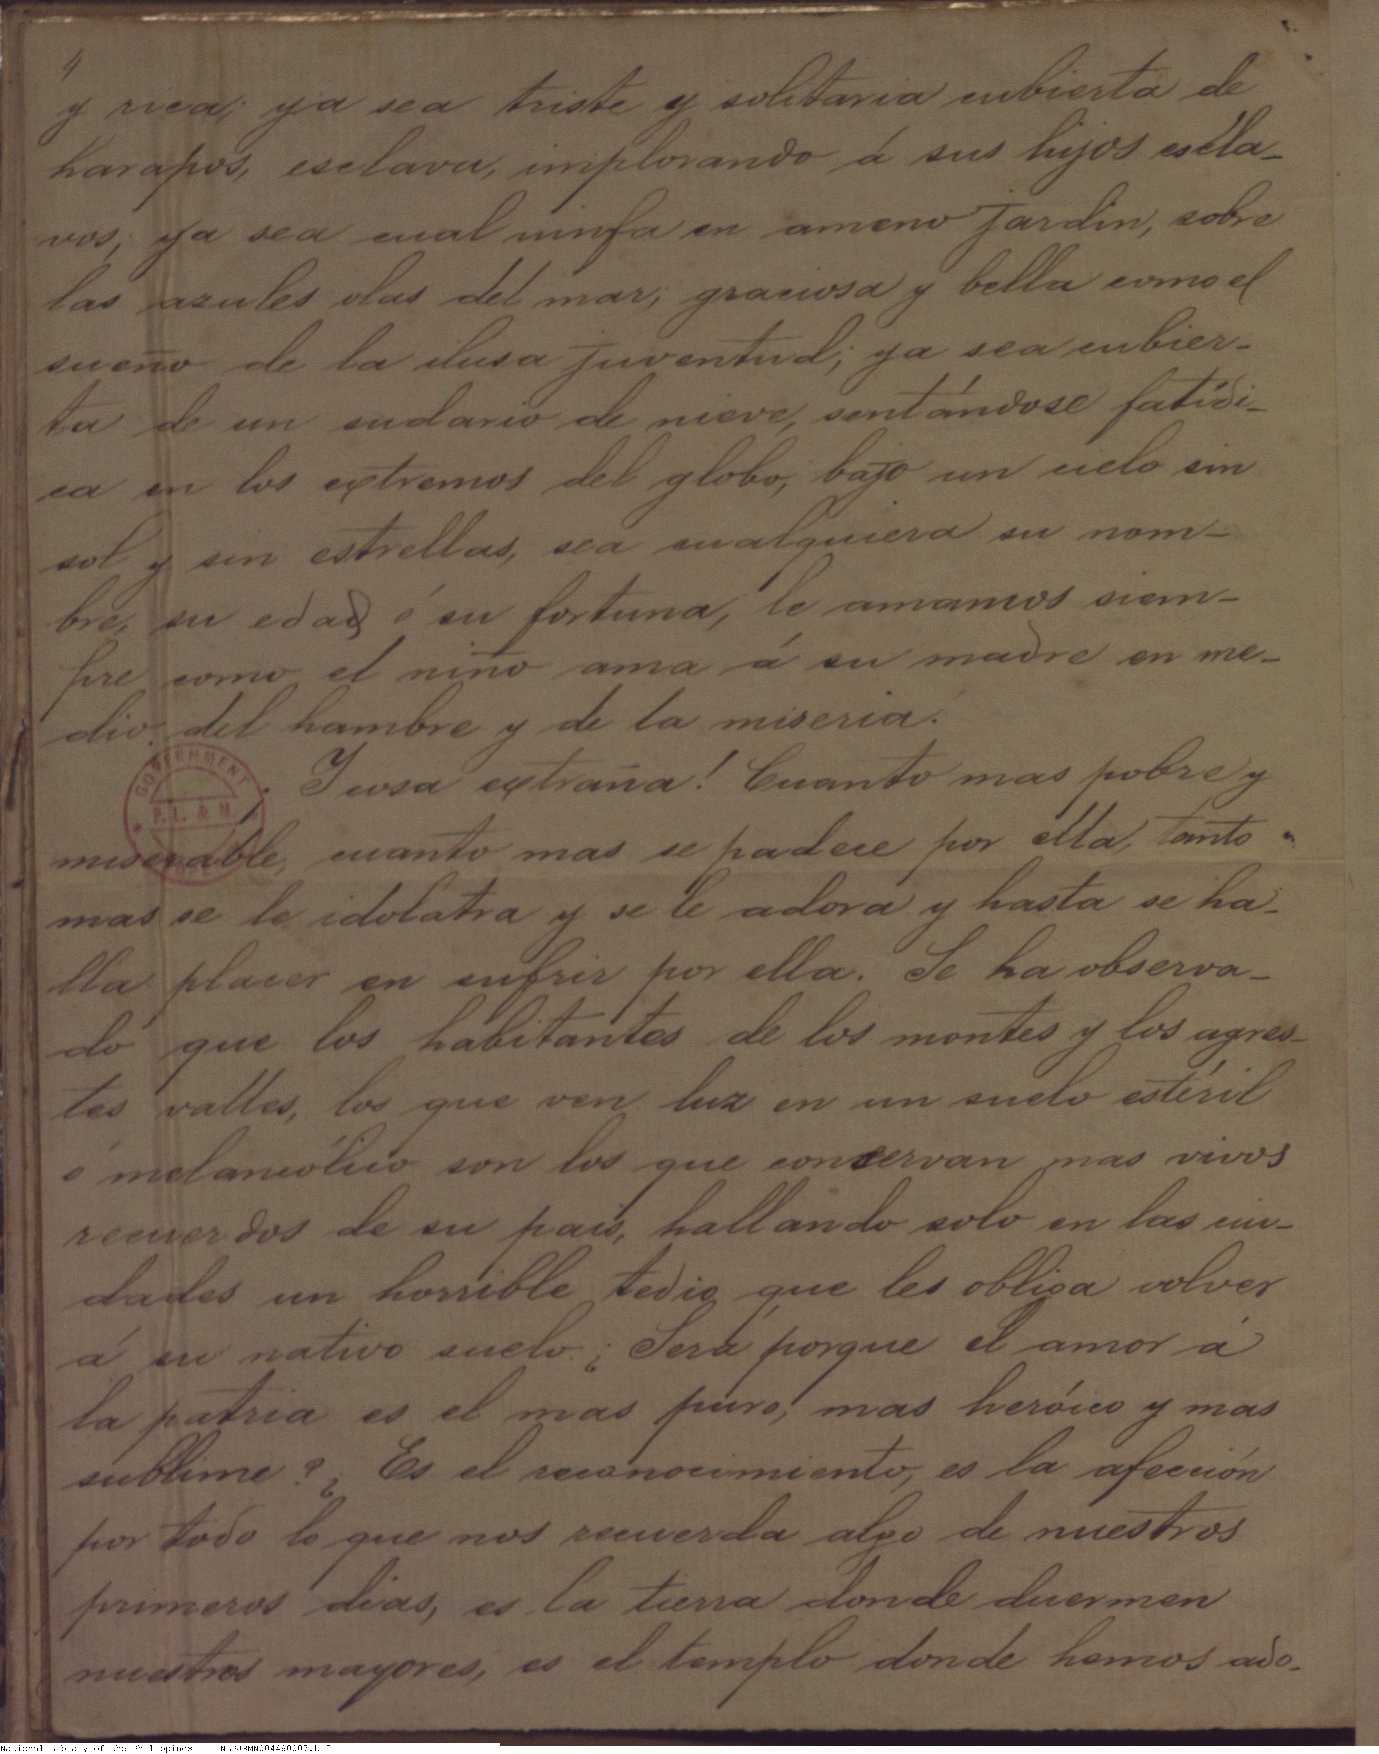 4
y rica; ya sea triste y solitaria cubierta de
harapos, esclava, implorando á sus hijos escla-
vos; ya sea cual ninfa en ameno jardin, sobre
las azules olas del mar, graciosa y bella como el
sueño de la ilusa juventud; ya sea cubier-
ta de un sudario de nieve, sentándose fatídi-
ca en los extremos del globo, bajo un cielo sin
sol y sin estrellas, sea cualquiera su nom-
bre, su edad ó su fortuna, le amamos siem-
pre como el niño ama á su madre en me-
dio del hambre y de la miseria.
¡Y cosa extraña! Cuanto mas pobre y
miserable, cuanto mas se padece por ella, tanto
mas se le idolatra y se le adora y hasta se ha-
lla placer en sufrir por ella. Se ha observa-
do que los habitantes de los montes y los agres-
tes valles, los que ven luz en un suelo estéril
ó melancólico son los que conservan mas vivos
recuerdos de su pais, hallando solo en las ciu-
dades un horrible tedio que les obliga volver
á su nativo suelo. ¿Será porque el amor á
la patria es el mas puro, mas heróico y mas
sublime? ¿Es el reconocimiento, es la afección
por todo lo que nos recuerda algo de nuestros
primeros dias, es la tierra donde duermen
nuestros mayores, es el templo donde hemos ado-
GOVERNMENT
P.L. & M.
National Library of the Philippines